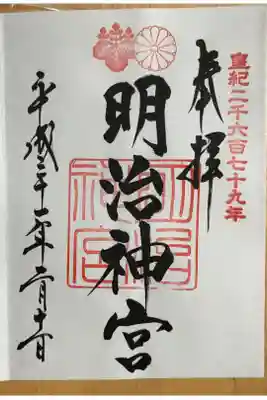 皇紀二千六百七十九年
奉拝
明治神宮
明治神宮
平成三十一年二月十一日